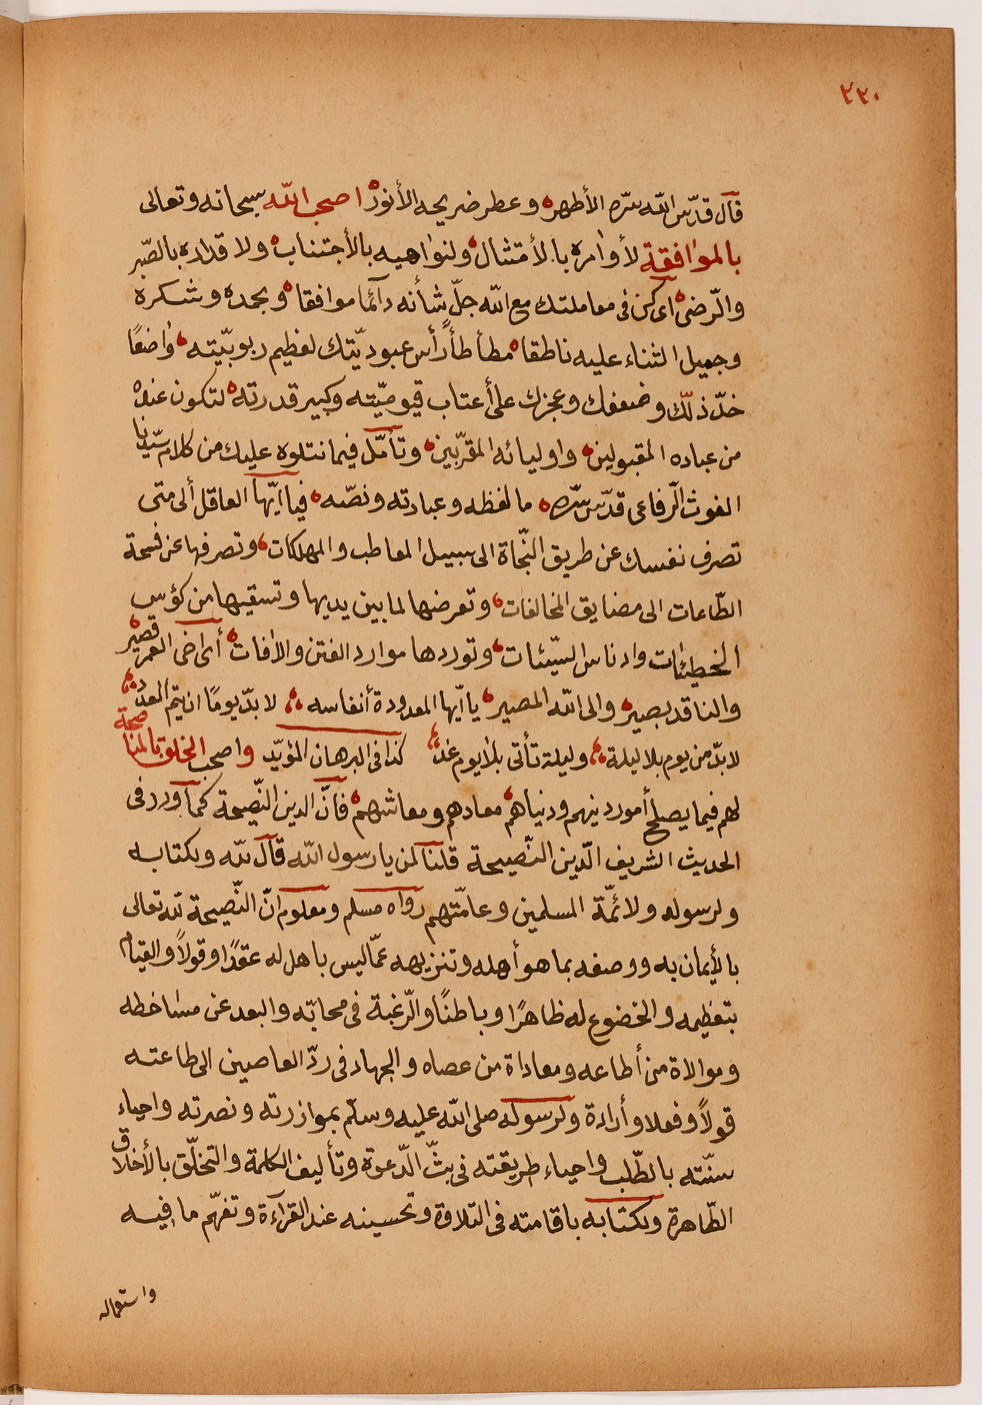 ٢٢٠
قال قدّس الله سرّه الأطهر وعطر ضريحه الأنور اصحب الله سبحانه وتعالى
بالموافقة لأوامره بالأمتثال ولنواهيه بالأجتناب ولا قداره بالصّبر
والرّضى اى كن فى معاملتك مع الله جلّ شأنه دآئما موافقا وبحمده وشكره
وجميل الثناء عليه ناطقا مطأطأ رأس عبوديّتك لعظيم ربوبيّته واضعًا
خدّ ذلّك وضعفك وعجزك على أعتاب قيوميّته وكبير قدرته لتكون عنده
من عباده المقبولين واوليائه المقرّبين وتأمّل فيما نتلوه عليك من كلام سيّدنا
الغوث الرّفاعى قدّس سرّه ما لفظه وعبادته ونصّه فيا ايّها العاقل ألى متى
تصرف نفسك عن طريق النّجاة الى سبيل المعاطب والمهلكات وتصرفها عن فسحة
الطّاعات الى مضايق المخالفات وتعرضها لما بين يديها وتسقيها من كؤس
الخطيئات وادناس السيّئات وتوردها موارد الفتن والآفات أى اخى العمر قصير
والناقد بصير والى الله المصير يا ايّها المعدودة أنفاسه لا بدّ يومًا ان يتم العدد
لا بدّ من يوم بلا ليلة وليلة تأتى بلا يوم غد كذا فى البرهان المؤيّد واصحب الخلق بالمناصحة
لهم فيما يصلح أمور دينهم ودنياهم معادهم ومعاشهم فانّ الدين النّصيحة كما ورد فى
الحديث الشريف الدّين النّصيحة قلنا لمن يا رسول الله قال لله ولكتابه
ولرسوله ولائمّة المسلمين وعامّتهم رواه مسلم ومعلوم انّ النّصيحة لله تعالى
بالأيمان به ووصفه بما هو أهله وتنزيهه عمّا ليس باهل له عقدًا وقولاً والقيام
بتعظيمه والخضوع له ظاهرًا وباطنًا والرّغبة فى محابّه والبعد عن مساخطه
وموالاة من أطاعه ومعاداة من عصاه والجهاد فى ردّ العاصين الى طاعته
قولاً وفعلا وأرادة ولرسوله صلى الله عليه وسلّم بموازرته ونصرته واحياء
سنّته بالطّلب واحياء طريقته فى بثّ الدّعوة وتأليف الكلمة والتخلّق بالأخلاق
الطّاهرة ولكتابه باقامته فى التلاوة وتحسينه عند القرآءة وتفهّم ما فيه
واستعماله